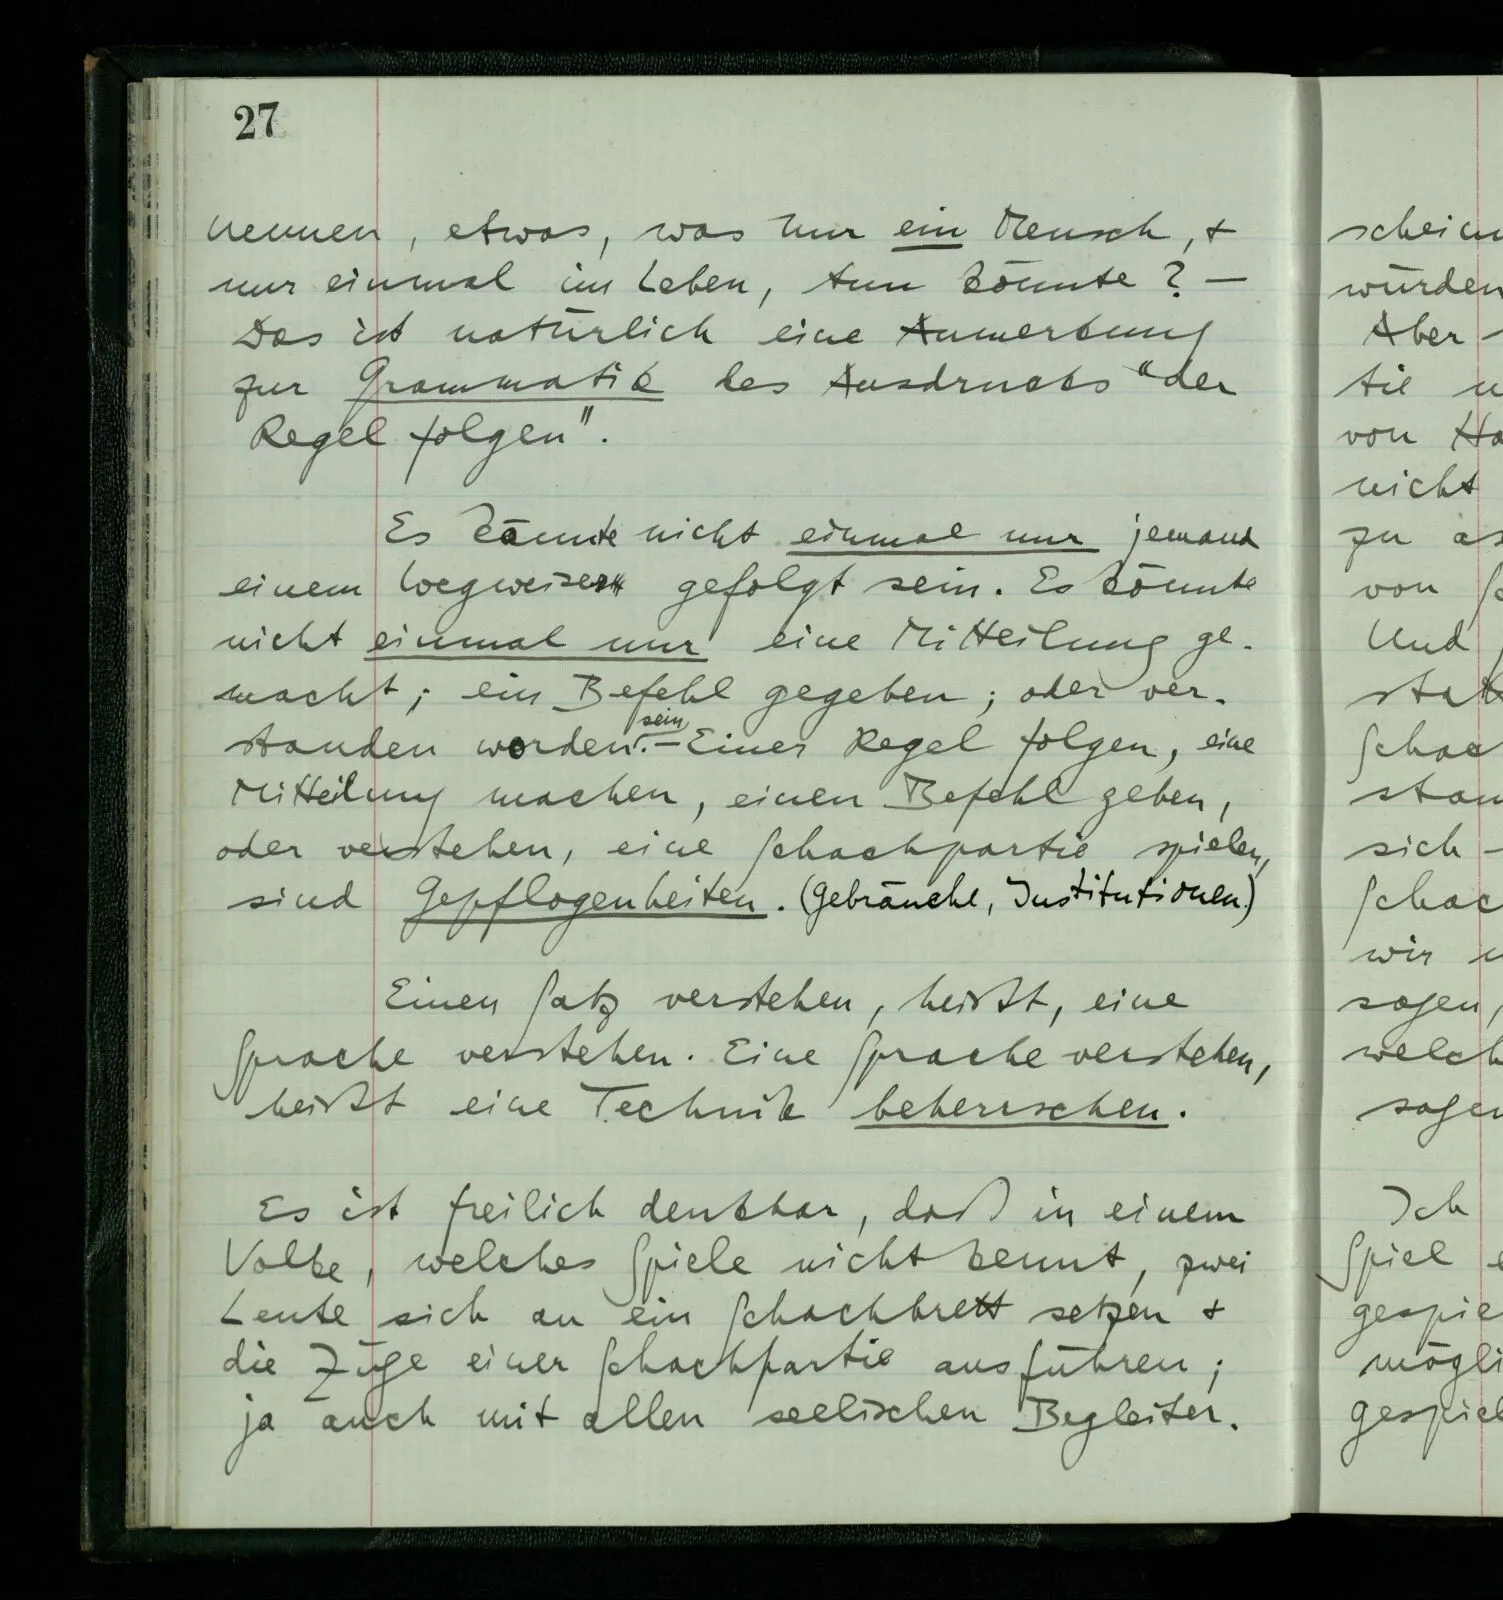 27
nennen, etwas, was nur ein Mensch, &
nur einmal im Leben, tun könnte? –
Das ist natürlich eine Anmerkung
zur Grammatik des Ausdrucks "der
Regel folgen".
Es könnte nicht einmal nur jemand
einem Wegweiser gefolgt sein. Es könnte
nicht einmal nur eine Mitteilung ge-
macht; ein Befehl gegeben; oder ver-
sein
standen worden. – Einer Regel folgen, eine
Mitteilung machen, einen Befehl geben,
oder verstehen, eine Schachpartie spielen,
sind Gepflogenheiten. (Gebräuche, Institutionen.)
Einen Satz verstehen, heißt, eine
Sprache verstehen. Eine Sprache verstehen,
heißt eine Technik beherrschen.
Es ist freilich denkbar, daß in einem
Volke, welches Spiele nicht kennt, zwei
Leute sich an ein Schachbrett setzen &
die Züge einer Schachpartie ausführen;
ja auch mit allen seelischen Begleiter-
würden
Aber
von
nicht
zu
von
Und
sich –
wir
Ich
Spiel